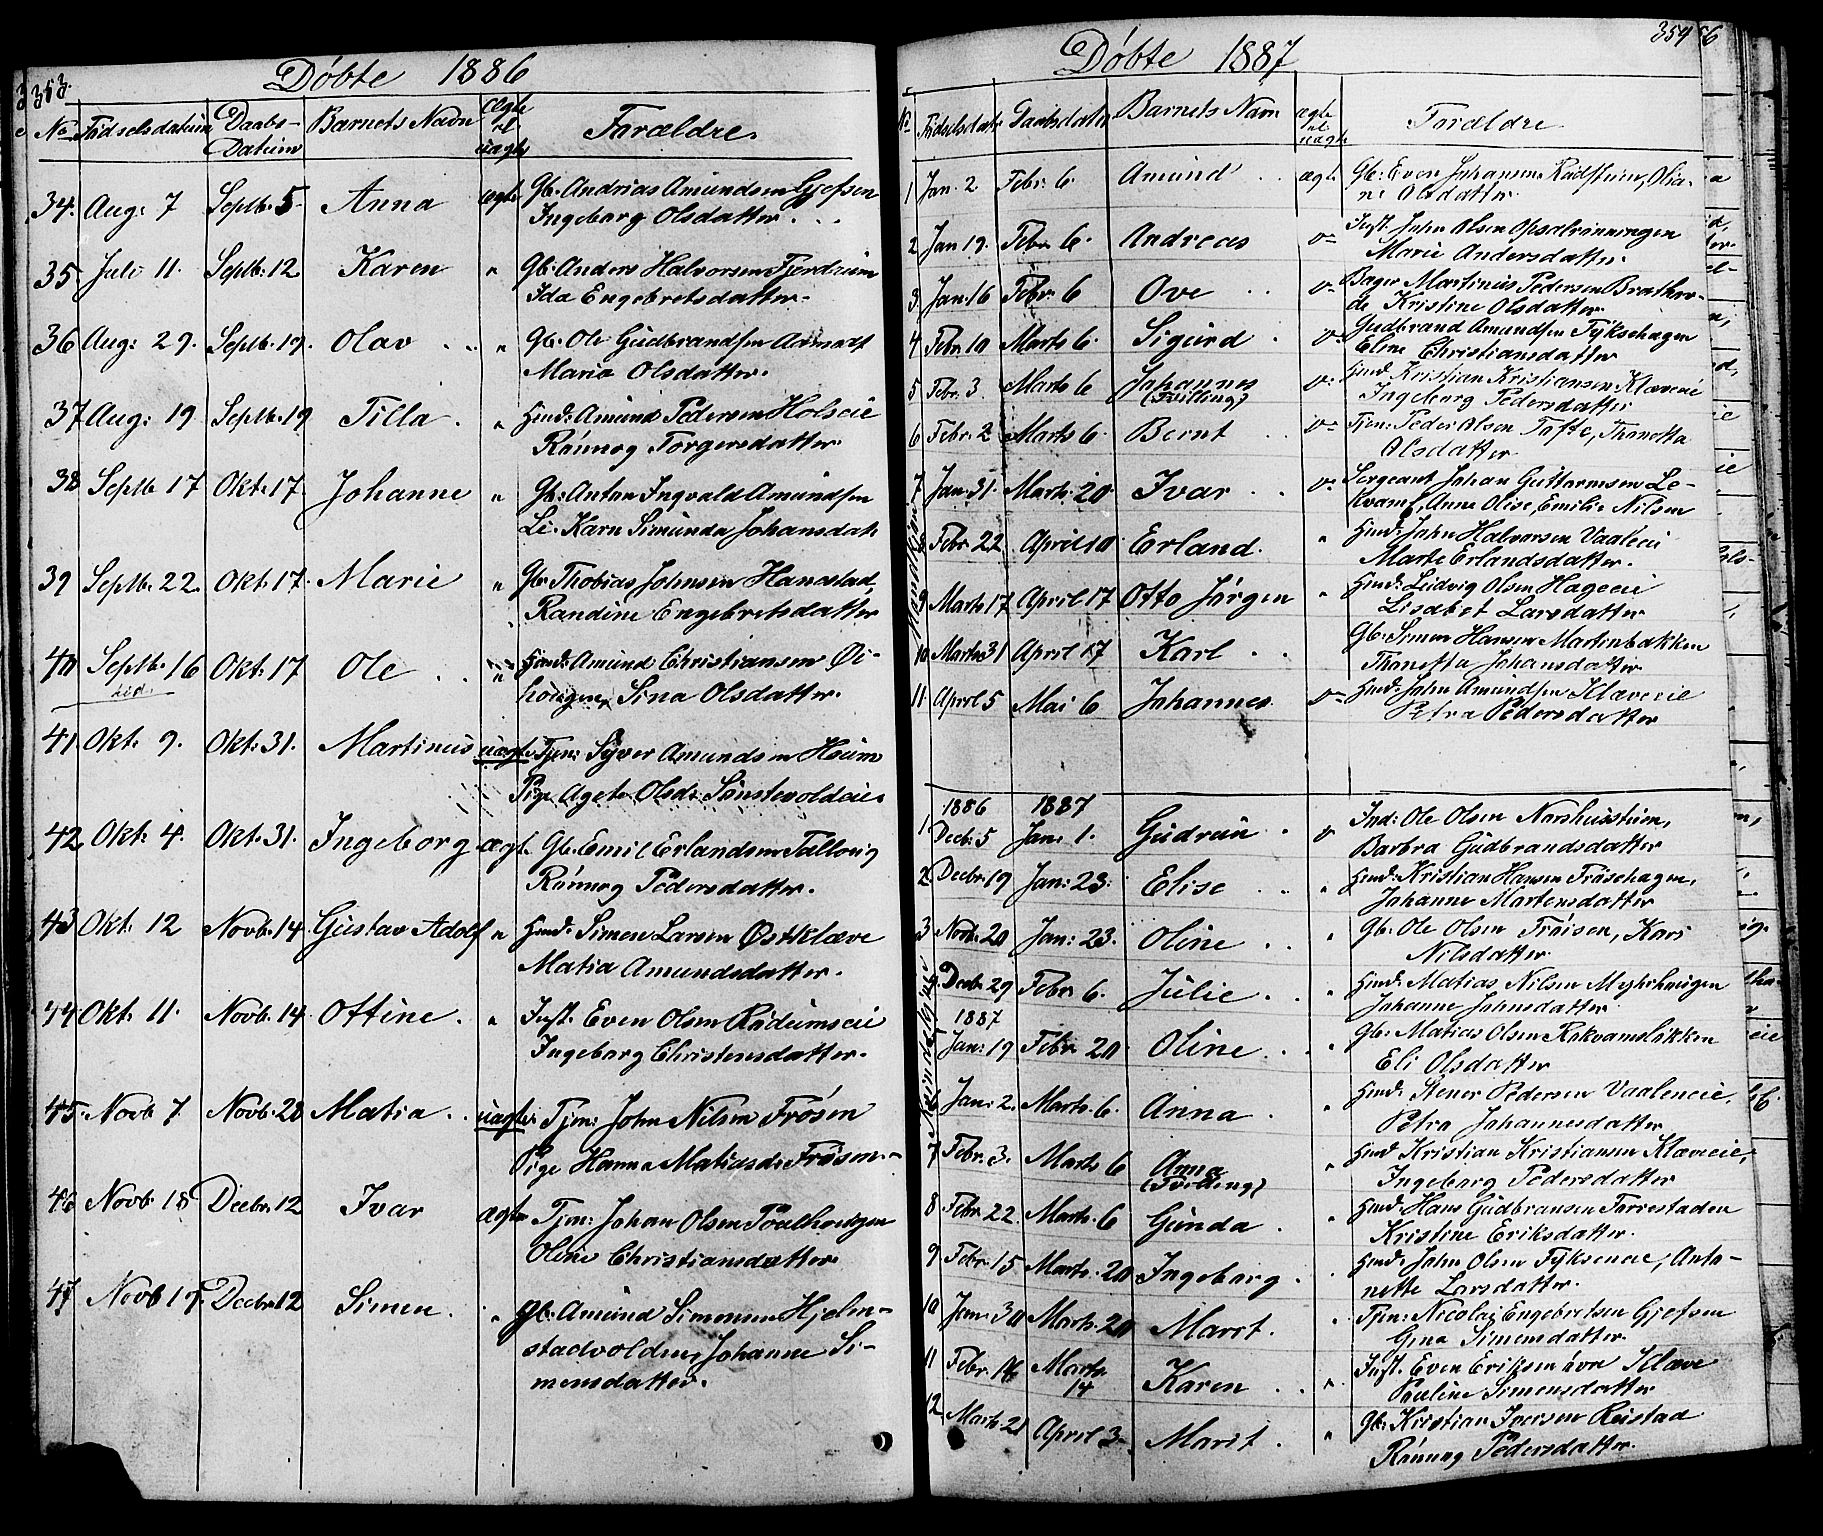 353.
Døbte 1886
No Fødselsdatum Daabs-Datum Barnets Navn ægte el uægte Forældre
34. Aug: 7 Septb. 5. Anna ægte Gb. Andrias Amundsen Gjefsen
Ingeborg Olsdatter.
35. Juli 11. Septb: 12 Karen " Gb: Anders Halvorsen Fjerdrum
Ida Engebretsdatter.
36 Aug: 29. Septb. 19. Olav " Gb. Ole Gudbrandsen
Maria Olsdatter.
37 Aug: 19 Septb. 19 Tilla. " Hmd: Amund Pedersen Holseie
Rønnog Torgersdatter.
38 Septb. 17 Okt: 17. Johanne " Gb: Anton Ingvald Amundsen
Lie. Karn Simunda Johansdat.
39 Septb. 22. Okt. 17. Marie " Gb. Thobias Johnsen Hanestad,
Randine Engebretsdatter
40 Septb. 16 Okt: 17 Ole " Hmd: Amund Christiansen Øi-
hougen, Sina Olsdatter.
41. Okt. 9. Okt: 31. Martinus uægte Tjen: Syver Amundsen Heium
Pige Agete Olsd: Sønstevoldeie
42. Okt: 4. Okt: 31. Ingeborg ægt. Gb. Emil Erlandsen
Rønnog Pedersdatter.
43 Okt. 12 Novb. 14 Gustav Adolf " Hmd. Simen Larsen Østklæve
Matia Amundsdatter.
44 Okt. 11. Novb. 14 Ottine. " Inst. Even Olsen
Ingeborg Christensdatter.
45. Novb 7 Novb. 28 Matia. uægte Tjen: John Nilsen Frøsen
Pige Hanna Matiasd: Frøsen.
46 Novb 18 Decbr. 12 Ivar ægte Tjen: Johan Olsen
Oline Christiansdatter
47 Novb 17. Decbr. 12 Simen. " Gb. Amund Simensen Hjelm-
stadvolden, Johanne Si-
mensdatter.
354
Døbte 1887
No Fødselsdat. Daabsdatum Barnets Navn ægte el uægte Forældre
Mandkjøn
1 Jan. 2 Febr: 6. Amund ægte Gb: Even Johansen Rudstuen, Olia-
ne Olsdatter
2 Jan 19. Febr. 6. Andreas Inst. John Olsen
Marie Andersdatter.
3. Jan. 16 Febr: 6 Ove Bager Martinus Pedersen
Kristine Olsdatter
4 Febr. 10 Marts 6. Sigurd Gudbrand Amundsen Fyksehagen
Eline Christiansdatter
5 Febr. 3. Marts 6 Johannes (Tvilling) Hmd Kristian Kristiansen Klæveeie
Ingeborg Pedersdatter
6 Febr. 2 Marts 6. Bernt Tjen: Peder Olsen Tofte, Thanetta
Olsdatter
7 Jan. 31. Marts. 20. Ivar Sergeant Johan Guttormsen Le-
kvam, Anne Olise, Emilie Nilsen
8 Febr. 22 April 10 Erland. " Hmd: John Halvorsen Vaaleeie
Marte Erlandsdatter.
9 Marts 17 April 17 Otto Jørgen " Hmd: Ludvig Olsen Hageeie
Lisabet Larsdatter
10 Marts 31 April 17 Karl Gb: Simen Hansen Martinbakken
Thanetta Johansdatter
11. April 5 Mai 6 Johannes Hmd: John Amundsen Klæveeie
Petra Pedersdatter
Kvindekjøn
1886 1887
1. Decb: 5 Jan: 1. Gudrun Ind: Ole Olsen Norshusstuen,
Barbra Gudbrandsdatter
2 Decbr. 19 Jan: 23. Elise " Hmd: Kristian Hansen Frøsehagen,
Johanne Martensdatter
3 Novb. 20 Jan: 23. Oline " Gb: Ole Olsen Frøisen, Kari
Nilsdatter
Decb. 29 Febr. 6. Julie. " Hmd: Matias Nilsen Myhrhaugen
Johanne Johnsdatter.
1887
5 Jan: 19 Febr. 20 Oline. " Gb: Matias Olsen Rokvamsløkken
Eli Olsdatter
6 Jan: 2. Marts. 6. Anna. " Hmd: Stener Pedersen Vaaleneie.
Petra Johannesdatter
7 Febr. 3. Marts 6 Anna (Tvilling) " Hmd Kristian Kristiansen Klæveeie,
Ingeborg Pedersdatter
8 Febr. 22. Marts. 6 Gunda. " Hmd: Hans Gudbransen
Kristine Eriksdatter.
9 Febr. 15 Marts. 20 Ingeborg. Hmd: John Olsen Fykseneie, Anto-
nette Larsdatter.
10 Jan: 30 Marts. 20 Marit. Tjen: Nicolai Engebretsen Gjefsen
Gina Simensdatter
11 Febr. Marts 14 Karen " Inst. Even Eriksen øvre Klæve
Pauline Simensdatter
12. Marts. 21 April 3. Marit. " Gb: Kristian Iversen Rustad
Rønnog Pedersdatter.